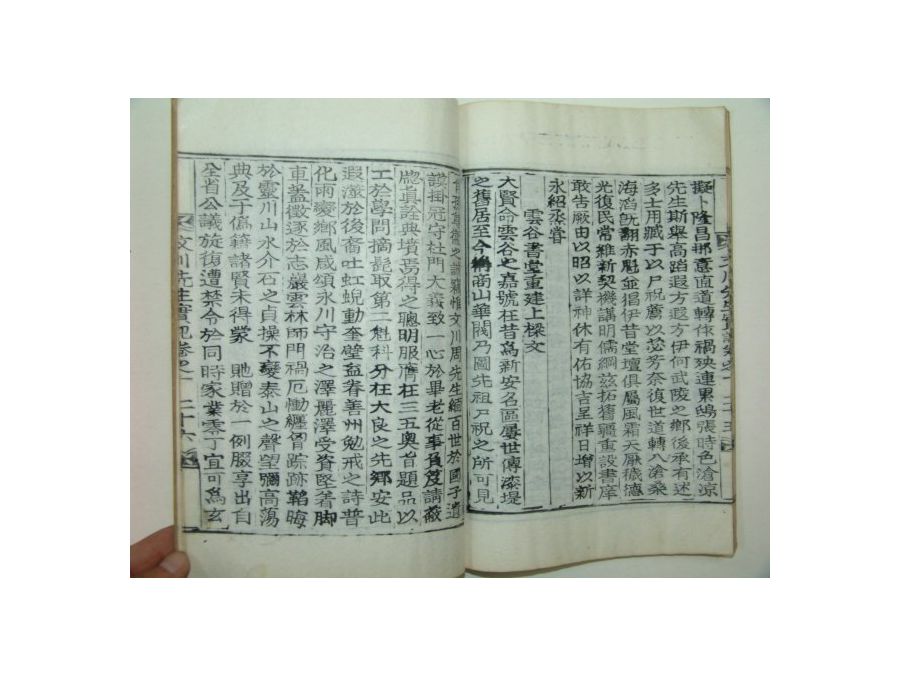 擬卜隆昌那意直道轉俠禍殃連累鴟張時色滄涼
先生斯擧高蹈遐方遐方伊何武陵之鄉後承有述
多士用臧于以尸祝薦以苾芬奈復世道轉八滄桑
海滔旣翻赤魁並猖伊昔堂壇俱屬風霜天厭穢德
光復民常維新契機講明儒綱玆拓舊疆重設書庠
敢告厥由以昭以詳神休有佑協吉呈祥日增以新
永紹烝嘗
雲谷書堂重建上樑文
大賢命雲谷之嘉號在昔爲新安名區屢世傳漆堤
之舊居至今稱商山華閥乃圖先祖尸祝之所可見
文川周先生緬百世於國子遺
謨掛冠守杜門大義致一心於畢老從事負笈請蔽
牕眞詮典墳焉得之聰明服膺在三五奧旨題品以
工於學問摘髭取第二魁科分在大良之先鄉安此
遐濚於後裔吐虹蜺動奎壁益眷善州勉戒之詩普
化雨變鄉風咸頌永川守治之澤麗澤受資堅着脚
車蓋徵逐於志巖雲林師門禍厄慟纏胷踪跡韜晦
於靈川山水介石之貞操不變泰山之聲望彌高蕩
典及于僞籍諸賢未得蒙 貤贈於一例腏享出自
全省公議旋復遭禁令於同時家業零丁宜可爲玄
文川先生實記卷之一 二十六